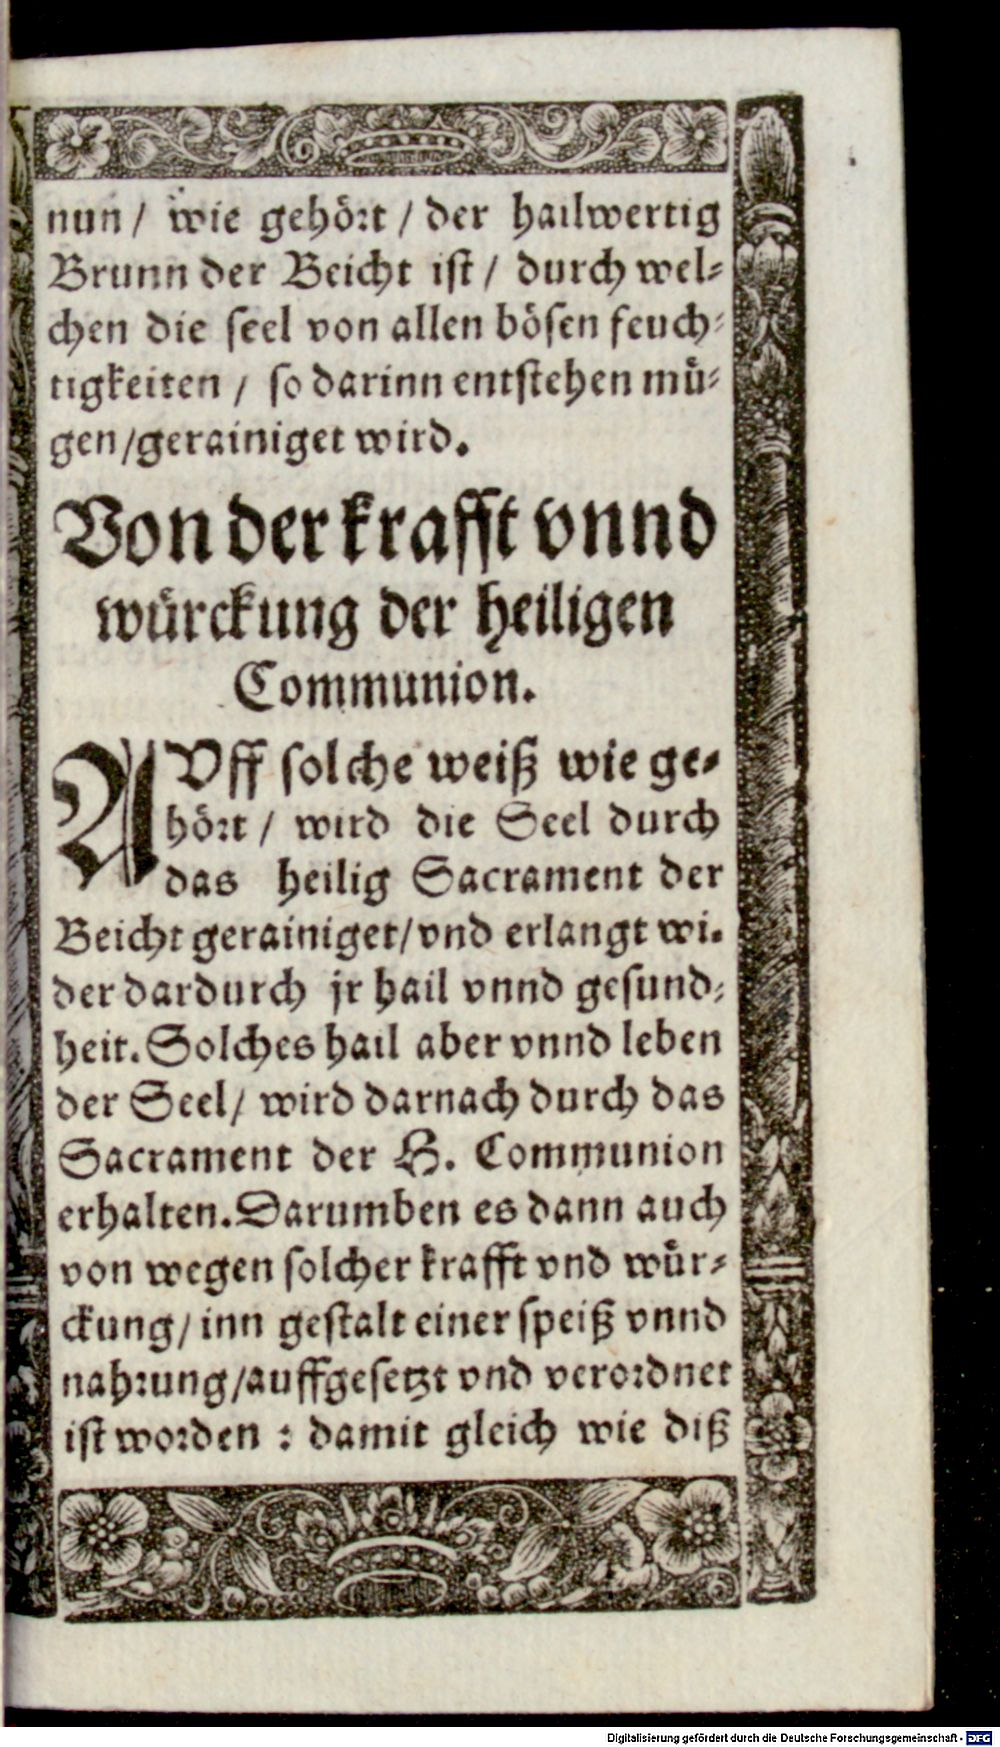 nun / wie gehört / der hailwertig
Brunn der Beicht ist / durch wel-
chen die seel von allen bösen feuch-
tigkeiten / so darinn entstehen mü-
gen/gerainiget wird.
Von der krafft vnnd
würckung der heiligen
Communion.
AVff solche weiß wie ge-
hört / wird die Seel durch
das heilig Sacrament der
Beicht gerainiget/vnd erlangt wi-
der dardurch jr hail vnnd gesund-
heit. Solches hail aber vnnd leben
der Seel/ wird darnach durch das
Sacrament der H. Communion
erhalten. Darumben es dann auch
von wegen solcher krafft vnd wür-
ckung/ inn gestalt einer speiß vnnd
nahrung/auffgesetzt vnd verordnet
ist worden : damit gleich wie diß
Digitalisierung gefördert durch die Deutsche Forschungsgemeinschaft - DFG